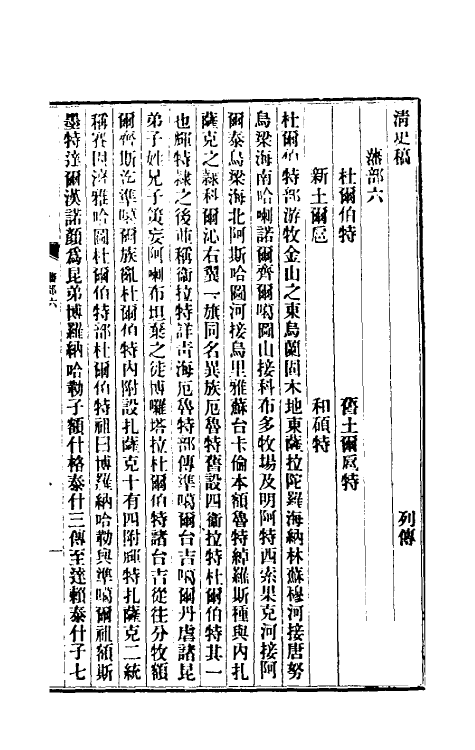 清史稿
列傳
藩部六
杜爾伯特　舊土爾扈特
新土爾扈　和碩特
杜爾伯特部游牧金山之東烏蘭固木地東薩拉陀羅海納林蘇穆河接唐努
烏梁海南哈喇諾爾齊爾噶圖山接科布多牧場及明阿特西索果克河接阿
爾泰烏梁海北阿斯哈圖河接烏里雅蘇台卡倫本額魯特綽羅斯種與內扎
薩克之隸科爾沁右翼一旗同名異族厄魯特舊設四衞拉特杜爾伯特其一
也輝特隸之後並稱衞拉特詳靑海厄魯特部傳準噶爾台吉噶爾丹虐諸昆
弟子姓兄子策妄阿喇布坦棄之徙博囉塔拉杜爾伯特諸台吉從往分牧額
爾齊斯迄準噶爾族亂杜爾伯特內附設扎薩克十有四附輝特扎薩克二統
稱賽因濟雅哈圖杜爾伯特部杜爾伯特祖曰博羅納哈勒與準噶爾祖額斯
墨特達爾漢諾顏爲昆弟博羅納哈勒子額什格泰什三傳至達賴泰什子七
藩部六
一